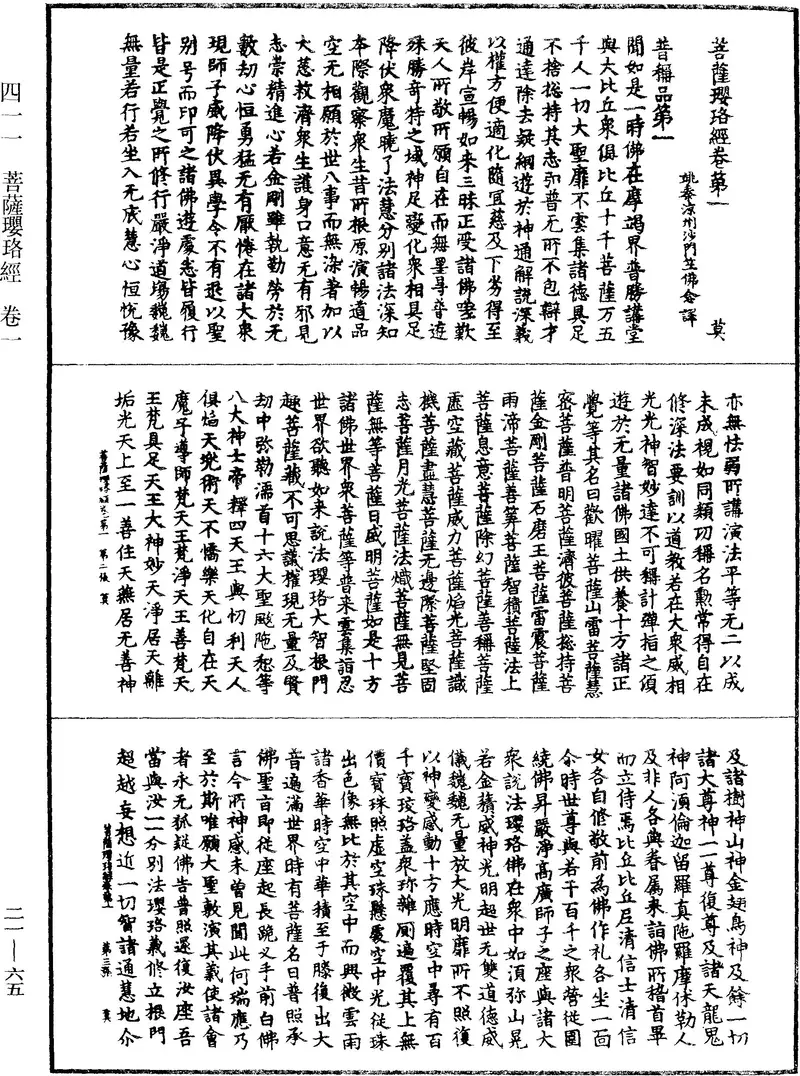 菩薩瓔珞經卷第一　莫
姚秦涼州沙門竺佛念譯
普稱品第一
聞如是一時佛在摩竭界普勝講堂
與大比丘衆俱比丘十千菩薩万五
千人一切大聖靡不雲集諸德具足
不捨惣持其志弘普无所不包辯才
通達除去疑網遊於神通解說深義
以權方便適化隨宜慈及下劣得至
彼岸宣暢如來三昧正受諸佛嗟歎
天人所敬所願自在而無罣㝵普遊
殊勝奇特之域神足變化衆相具足
降伏衆魔曉了法慧分別諸法深知
本際觀察衆生昔所根原演暢道品
空无相願於世八事而無染著加以
大慈救濟衆生護身口意无有邪見
志崇精進心若金剛雖執勤勞於无
數劫心恒勇猛无有厭惓在諸大衆
現師子威降伏異學令不有退以聖
別号而印可之諸佛遊處悉皆履行
皆是正覺之所修行嚴淨道場巍巍
無量若行若坐入无底慧心恒悅豫
亦無怯弱所講演法平等无二以成
未成視如同類功稱名勳常得自在
修深法要訓以道教若在大衆威相
光光神智妙達不可稱計彈指之頃
遊於无量諸佛國土供養十方諸正
覺等其名曰歡曜菩薩山雷菩薩慧
密菩薩普明菩薩濟彼菩薩惣持菩
薩金剛菩薩石磨王菩薩雷震菩薩
雨渧菩薩善筭菩薩智積菩薩法上
菩薩息意菩薩除幻菩薩善稱菩薩
虛空藏菩薩威力菩薩焰光菩薩識
機菩薩盡慧菩薩无邊際菩薩堅固
志菩薩月光菩薩法熾菩薩無見菩
薩無等菩薩日威明菩薩如是十方
諸佛世界衆菩薩等普來雲集詣忍
世界欲聽如來說法瓔珞大智根門
趣菩薩藏不可思議權現无量及賢
劫中弥勒濡首十六大聖颰陁惒等
八大神士帝釋四天王與忉利天人
俱焰天兜術天不憍樂天化自在天
魔子導師梵天王梵淨天王善梵天
王梵具足天王大神妙天淨居天離
垢光天上至一善住天無居无善神
菩薩瓔珞經卷第一　第二張　莫
及諸樹神山神金翅鳥神及餘一切
諸大尊神一一尊復尊及諸天龍鬼
神阿須倫迦留羅真陁羅摩休勒人
及非人各與眷屬來詣佛所稽首畢
而立侍焉比丘比丘尼清信士清信
女各自修敬前為佛作礼各坐一面
尒時世尊與若干百千之衆營從圍
繞佛昇嚴淨高廣師子之座與諸大
衆說法瓔珞佛在衆中如須弥山晃
若金積威神光明超世无雙道德威
儀巍巍无量放大光明靡所不照復
以神變感動十方應時空中尋有百
千寶珓珞蓋衆珎雜廁遍覆其上無
價寶珠照虛空珠懸處空中光從珠
出色像無比於其空中而興微雲雨
諸香華時空中華積至于膝復出大
音遍滿世界時有菩薩名曰普照承
佛聖旨即從座起長跪叉手前白佛
言今所神感未曾見聞此何瑞應乃
至於斯唯願大聖敷演其義使諸會
者永无狐疑佛告普照還復汝座吾
當與汝一一分別法瓔珞義修立根門
超越妄想近一切智諸通慧地尒
菩薩瓔珞經卷第一　第三張　莫
四一一　菩薩瓔珞經　卷一
二一—六五